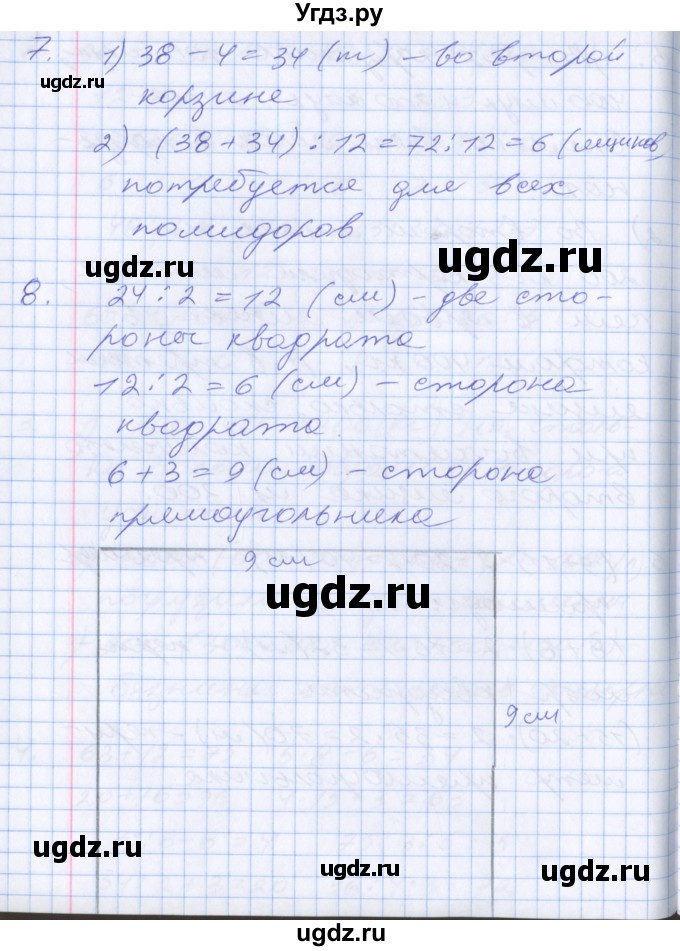 Угдз.ру
7. 1) 38 - 4 = 34 (т) - во второй
корзине
ugdz.ru
2) (38 + 34) : 12 = 72 : 12 = 6 (ящиков)
потребуется для всех
помидоров
ugdz.ru
ugdz.ru
8. 24 : 2 = 12 (см) - две сто-
роны квадрата
12 : 2 = 6 (см) - сторона
квадрата.
6 + 3 = 9 (см) - сторона
прямоугольника
9 см
ugdz.ru
9 см
ugdz.ru
ugdz.ru
ugdz.ru
ugdz.ru